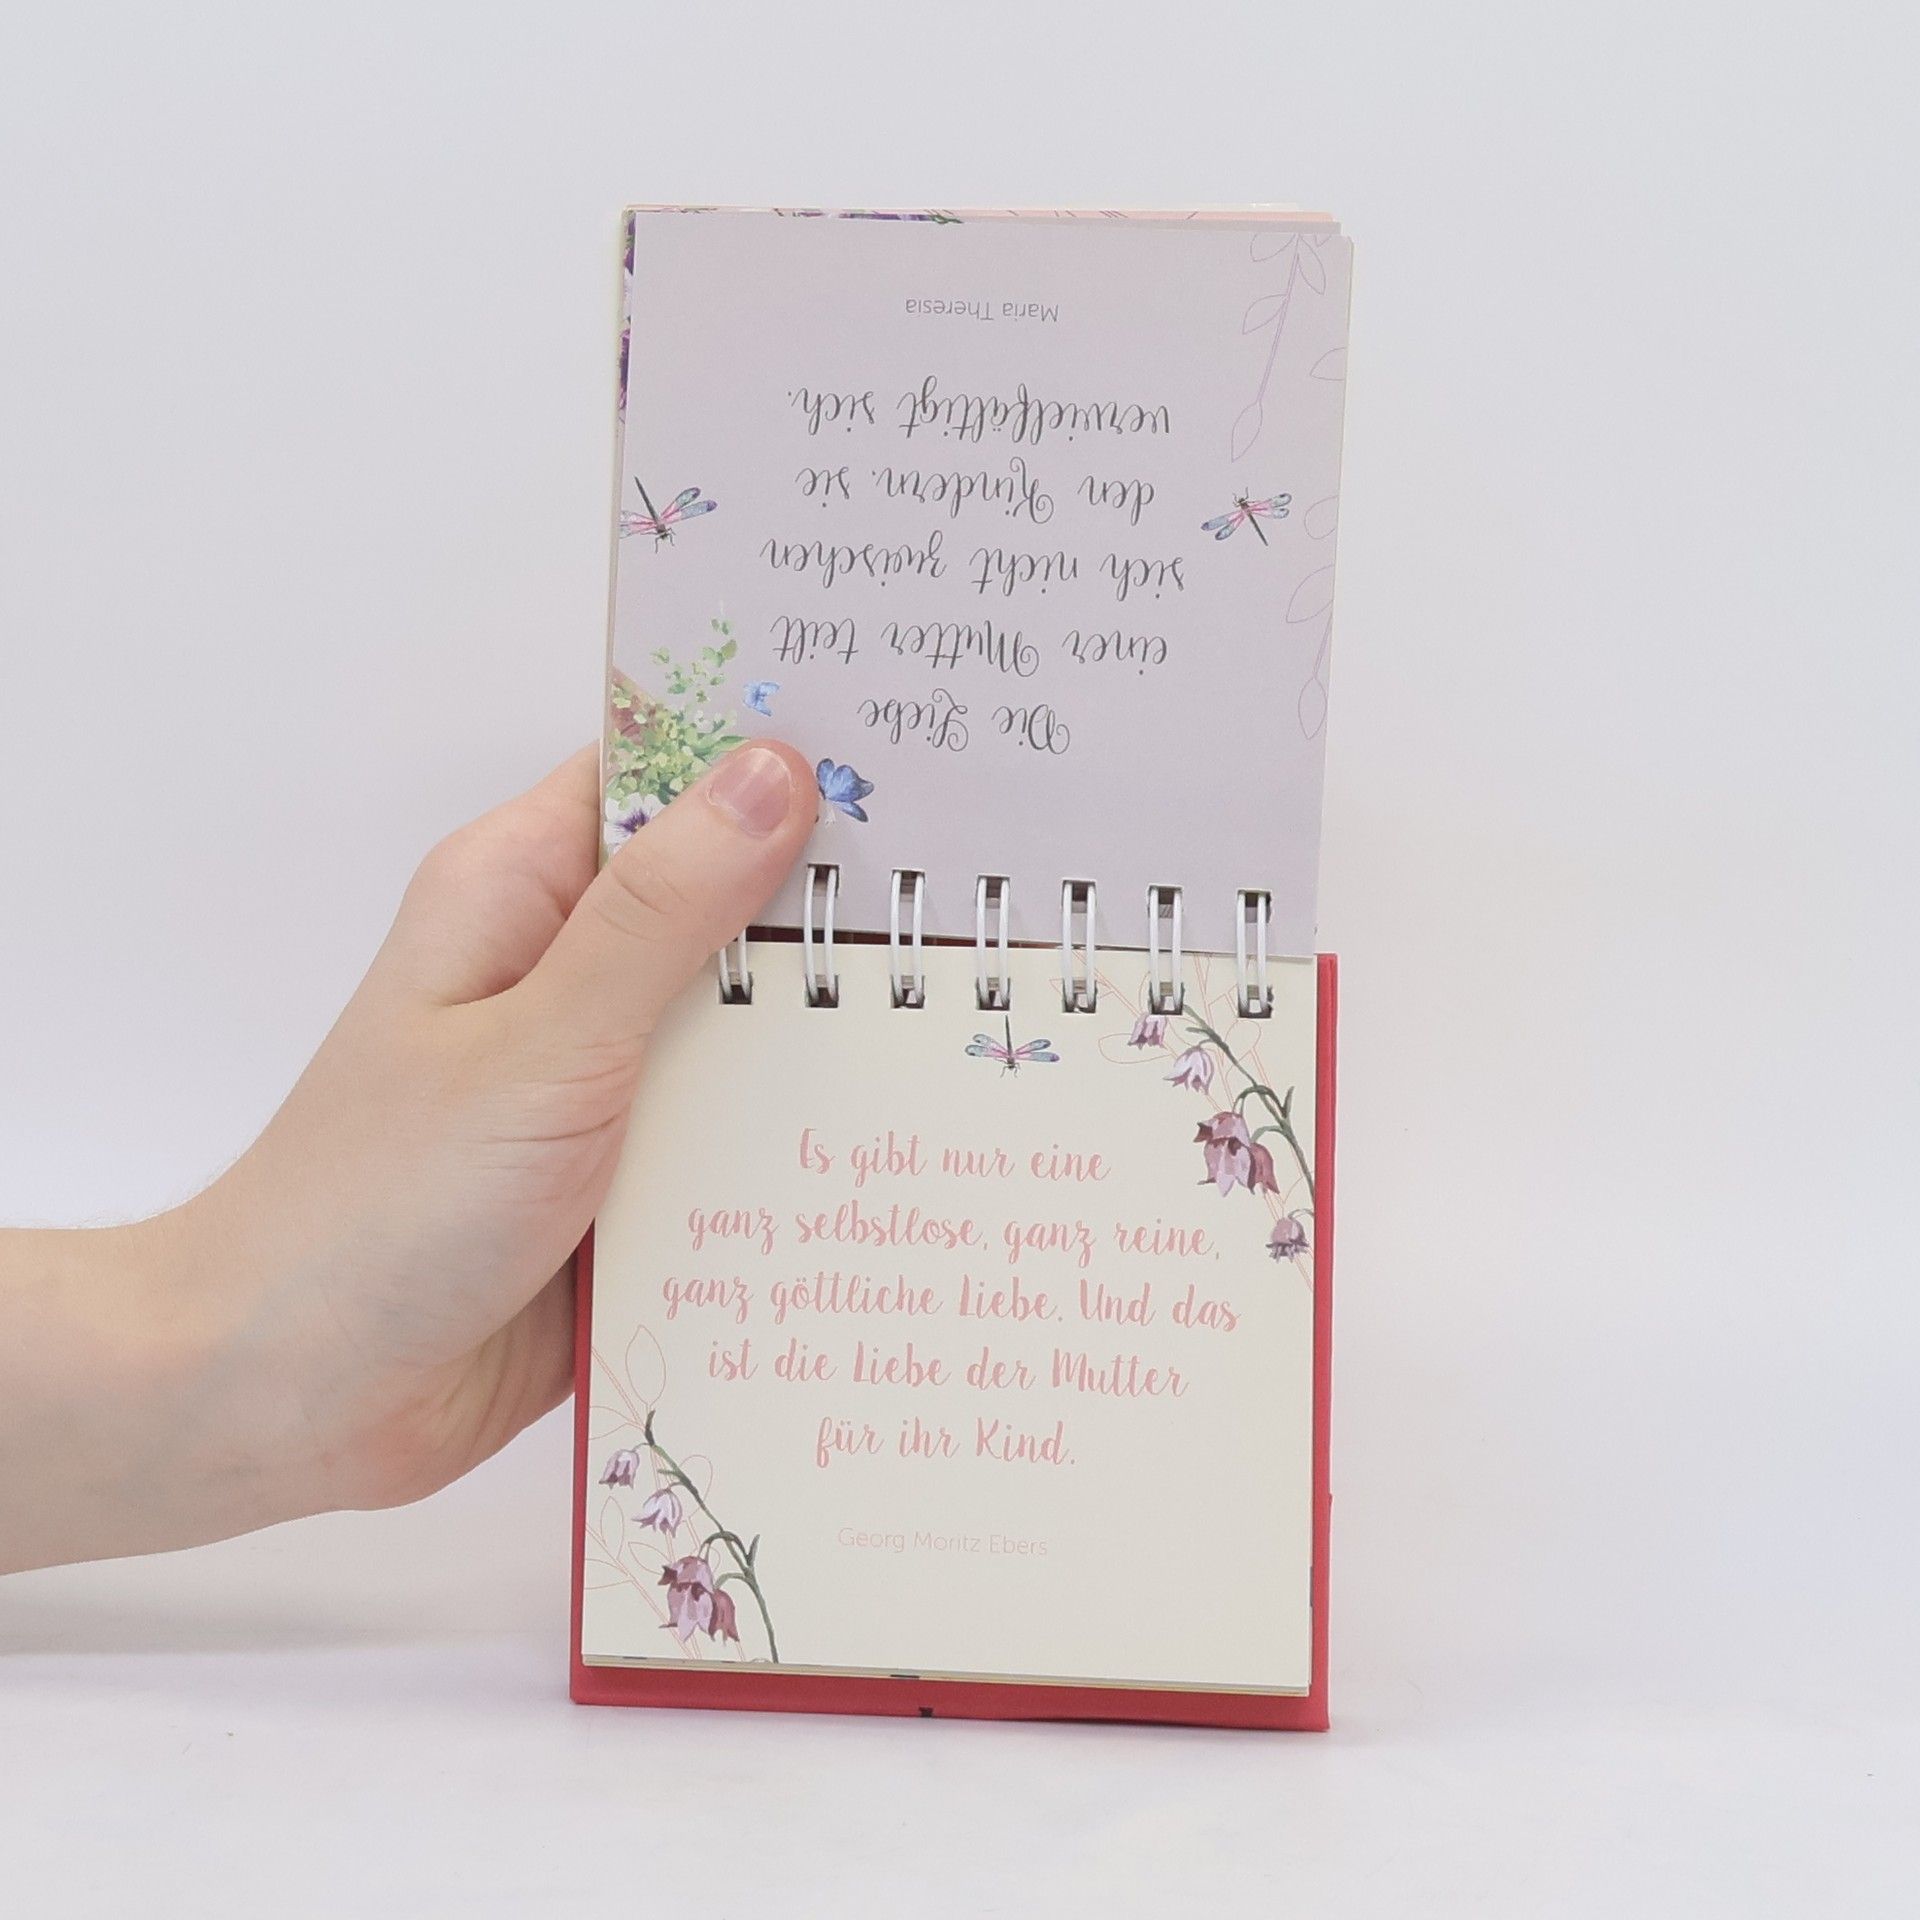 Die Liebe
einer Mutter teilt
sich nicht zwischen
den Kindern, sie
vervielfältigt sich.
Maria Theresia
Es gibt nur eine
ganz selbstlose, ganz reine,
ganz göttliche Liebe. Und das
ist die Liebe der Mutter
für ihr Kind.
Georg Moritz Ebers